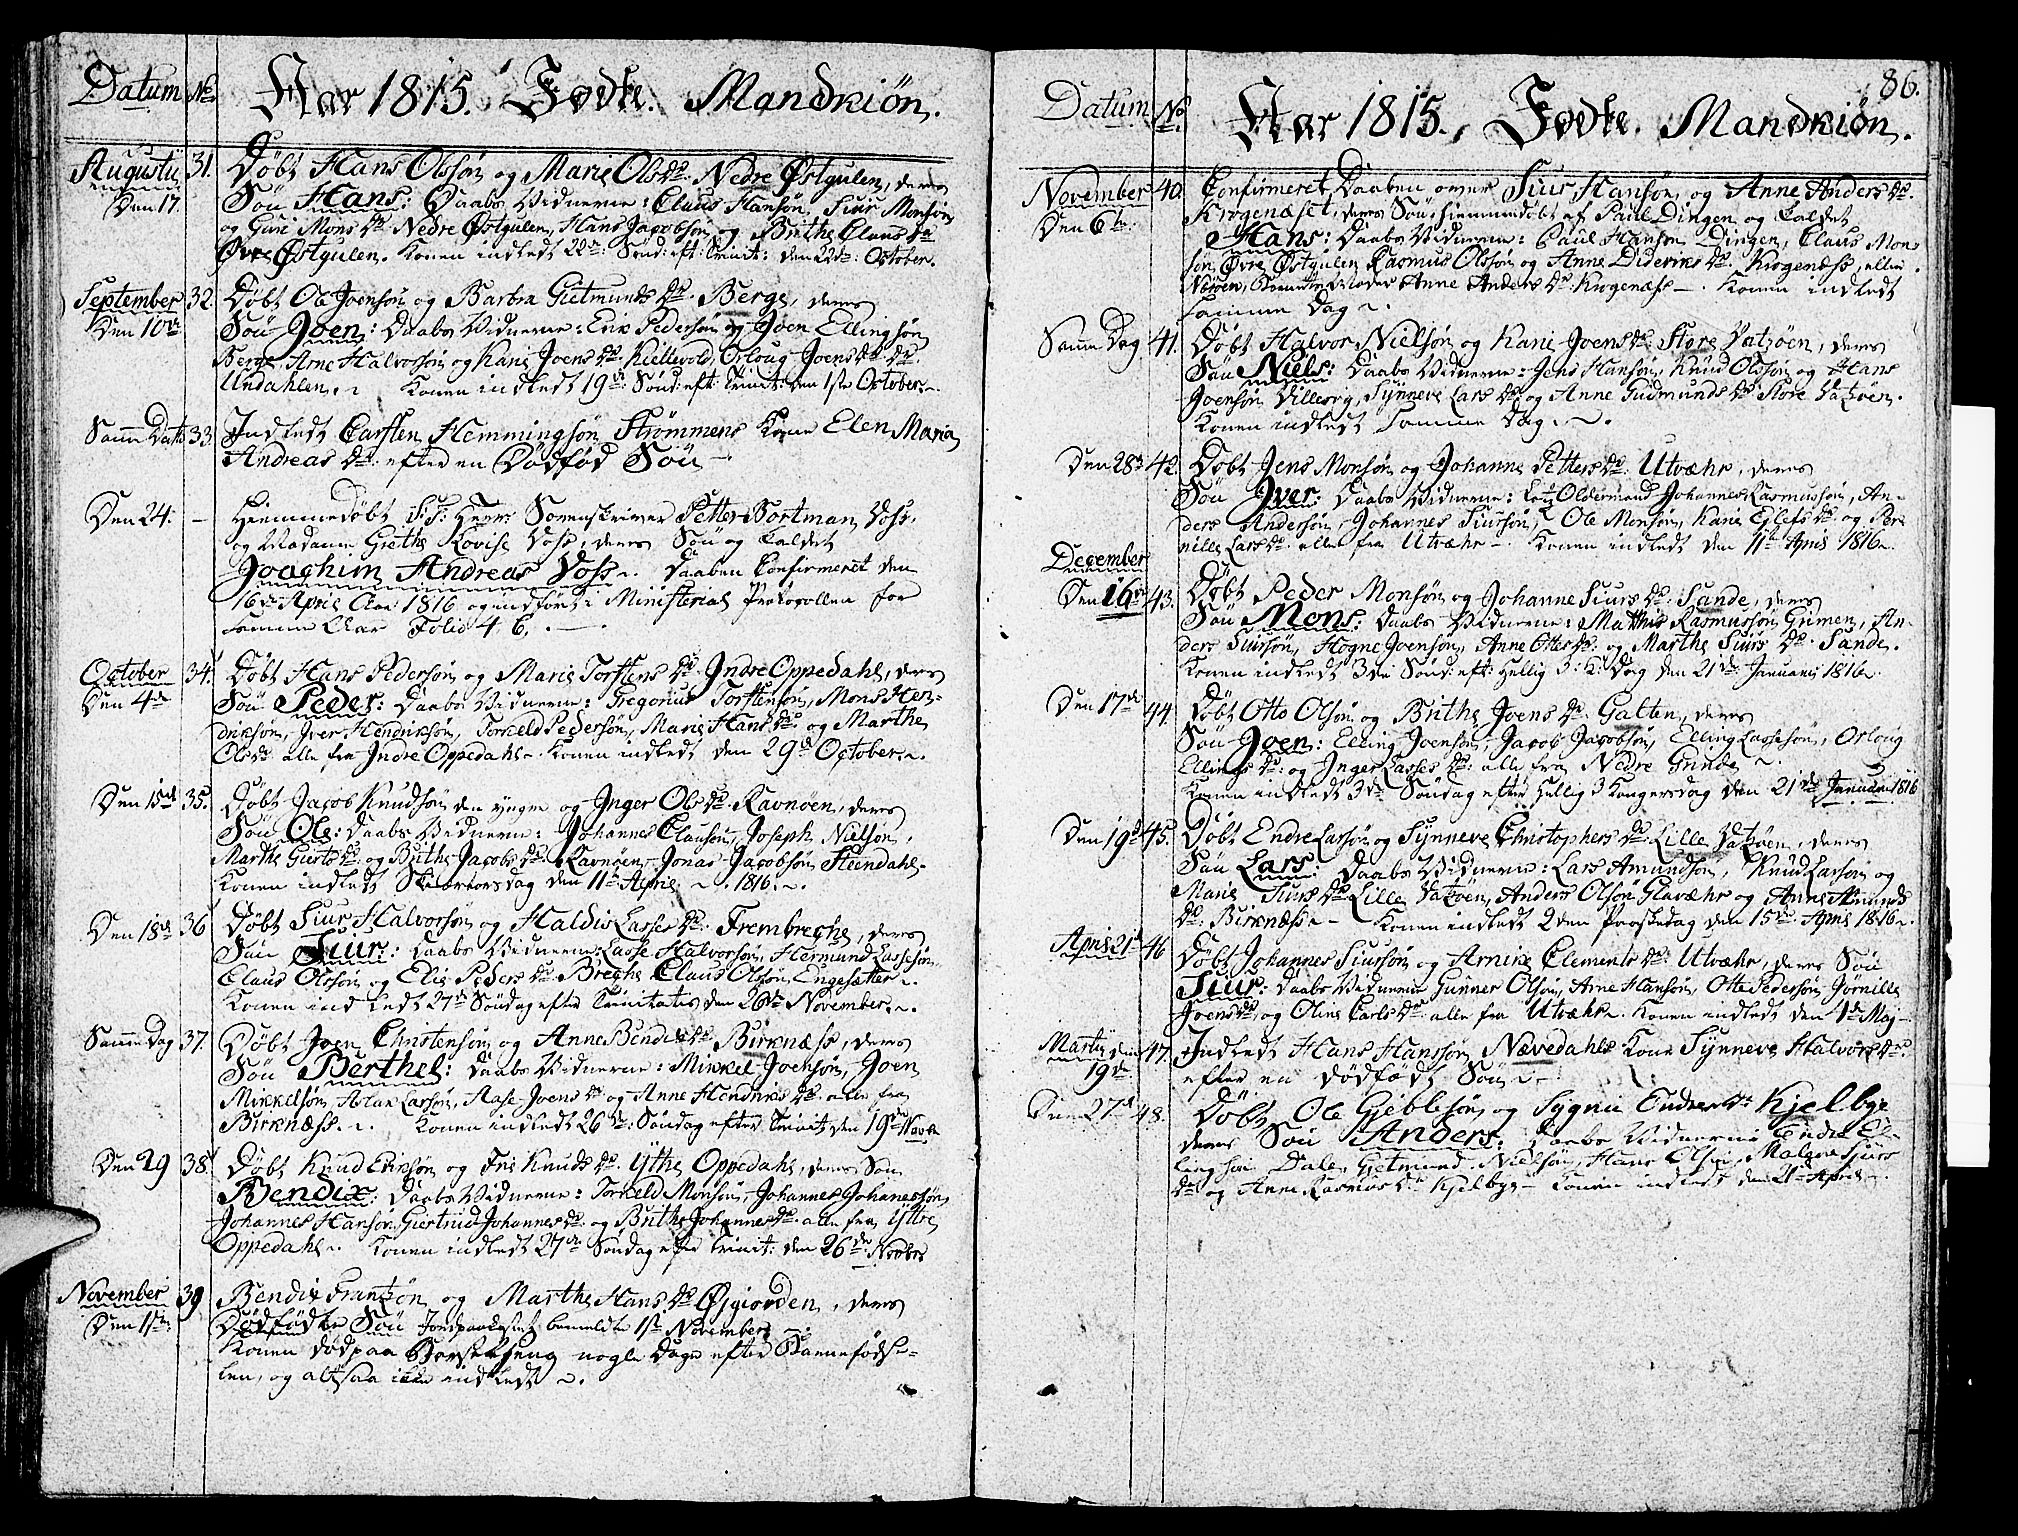 Datum No Aar 1815. Fødte. Mandkiøn.
Augustij 31. Døbt Hans Olssøn og Marie Olsdr. Nedre Østgulen, deres
Den 17. Søn Hans: Daabs Vidnerne: Claus Hansøn, Siur Monsøn
og Guri Monsdr. Nedre Østgulen, Hans Jacobsøn og Brithe Clausdr.
Øvre Østgulen. Konen indledt 22de Sønd: eft: Trinit: den 22de October.
September 32. Døbt Ole Joensøn og Barbra Gietmundsdr. Berge, deres
Den 10de Søn Joen: Daabs Vidnerne: Erik Pedersøn og Joen Ellingsøn
Berge, Arne Halvorsøn og Kari Joensdr. Kiellevold, Orloug Joensdr.
Undahlen. Konen indledt 19de Sønd: eft: Trinit: den 1ste October.
Samme Dato 33. Indledt Carsten Hemmingsøn Strømmens Kone Elen Maria
Andreasdr. efter en Dødfød Søn
Den 24. – Hiemmedøbt S: T: Herr Sorenskriver Petter Bortman Voss,
og Madame Grethe Lovise Voss, deres Søn og kaldet
Joachim Andreas Voss. Daaben Confirmeret den
16de April Aar 1816 og indført i Ministerial Protokollen for
samme Aar Folio 4, 6.
October 34. Døbt Hans Pedersøn og Marie Torstensdr. Indre Oppedahl, deres
Den 4de Søn Peder: Daabs Vidnerne: Gregorius Torstensøn, Mons Hen-
driksøn, Iver Hendriksøn, Torkeld Pedersøn, Marie Hansdr. og Marthe
Olsdr. alle fra Indre Oppedahl. Konen indledt den 29de October.
Den 15de 35. Døbt Jacob Knudsøn den yngre og Inger Olsdr. Ravnøen, deres
Søn Ole: Daabs Vidnerne: Johannes Clausøn, Joseph Nielsøn,
Marthe Giertsdr. og Brithe Jacobsdr. Ravnøen, Jonas Jacobsøn Steendahl.
Konen indledt Skiærtorsdag den 11te April 1816.
Den 18de 36 Døbt Siur Halvorsøn og Haldis Lassesdr. Frembreche, deres
Søn Siur: Daabs Vidnerne: Lasse Halvorsøn, Hermund Lassesøn,
Claus Olssøn og Elie Pedersdr. Breche, Claus Olssøn Engesætter.
Konen indledt 27de Søndag efter Trinitatis den 26de November.
Samme Dag 37. Døbt Joen Christensøn og Anne Bendixdr. Birknæss, deres
Søn Berthel: Daabs Vidnerne: Mikkel Joensøn, Joen
Mikkelsøn, Aslak Larsøn, Aase Joensdr. og Anne Henrichsdr. alle fra
Birknæss. Konen indledt 26de Søndag efter Trinit: den 19de Novbr.
Den 29 38. Døbt Knud Ericksøn og Fris Knudsdr. Ytre Oppedahl, deres Søn
Bendix: Daabs Vidnerne: Torkeld Monsøn, Johannes Johannessøn,
Johannes Hansøn, Giertrud Johannesdr. og Brithe Johannesdr. alle fra Ytre
Oppedahl. Konen indledt 27de Søndag efter Trinit: den 26de Novbr.
November 39 Bendix Frantzøn og Marthe Hansdr. Øygiorden, deres
Den 1ste Dødfødte Søn Jordpaakastet bemeldte 1ste November.
Konen død paa Barselseng nogle Dage efter Barnefødse-
len, og altsaa ikke indledt.
86.
Datum No Aar 1815. Fødte. Mandkiøn.
November 40. Confirmeret Daaben over Siur Hansøn, og Anne Andersdr.
Den 6te Krogenæset, deres Søn, hiemmedøbt af Paul Dingen og kaldet
Hans: Daabs Vidnerne: Paul Hansøn Dingen, Claus Mon-
søn Øvre Østgulen, Rasmus Olssøn og Anne Dideriksdr. Krogenæss,
Anne Andersdr. Krogenæss. Konen indledt
samme Dag.
Samme Dag 41. Døbt Halvor Nielsøn og Kari Joensdr. Store Hatzøen, deres
Søn Niels: Daabs Vidnerne: Jens Hansøn, Knud Olssøn og Hans
Joensøn Hillesøy, Synneve Larsdr. og Anne Gudmundsdr. Store Hatzøen.
Konen indledt samme Dag.
Den 28de 42. Døbt Jens Monsøn og Johanne Pettersdr. Utvæhr, deres
Søn Iver: Daabs Vidnerne: Oldermand Johannes Rasmussøn, An-
ders Andersøn, Johannes Siursøn, Ole Monsøn, Kari Eylefsdr. og Per-
nille Larsdr. alle fra Utvæhr. Konen indledt den 11te April 1816.
December
Den 16de 43. Døbt Peder Monsøn og Johanne Siursdr. Sande, deres
Søn Mons: Daabs Vidnerne: Mathis Rasmussøn Grimen, An-
ders Siursøn, Hogne Joensøn, Anne Ottesdr. og Marthe Siursdr. Sande.
Konen indledt 3die Sønd: eft: Hellig 3: K: Dag den 21de Januarii 1816.
Den 17de 44. Døbt Otto Olsøn og Brithe Joensdr. Galten, deres
Søn Joen: Elling Joensøn, Jacob Jacobsøn, Elling Lassesøn, Orloug
Ellingsdr. og Inger Lassesdr. alle fra Nedre Grinde.
Konen indledt 3die Søndag efter Hellig 3 Kongersdag den 21de Januarii 1816
Den 19de 45. Døbt Endre Larsøn og Synneve Christophersdr. Lille Hatzøen, deres
Søn Lars: Daabs Vidnerne: Lars Amundsøn, Knud Larsøn og
Marie Siursdr. Lille Hatzøen, Anders Olsøn Glavæhr og Anne Amunds
dr. Birknæss. Konen indledt 2den Paaskedag den 15de April 1816.
April 21de 46 Døbt Johannes Siursøn og Arnike Clementsdr. Utvæhr, deres Søn
Siur: Daabs Vidnerne Gunner Olsøn, Arne Hansøn, Otte Pedersøn, Jørnille
Joensdr. og Oline Carlsdr. alle fra Utvæhr. Konen indledt den 1ste Maj
Martij den 47. Indledt Hans Hanssøn Nævedahls Kone Synneve Halvorsdr.
19de efter en dødfødt Søn.
Den 27de 48. Døbt Ole Gieblesøn og Sygni Endresdr. Kjelbye
deres Søn Anders: Daabs Vidnerne Endre El-
lingsøn Dale, Gietmund Nielsøn, Hans Olsøn, Malene Sjurs
dr. og Anne Rasmusdr. Kjelbye. Konen indledt den 21de April.